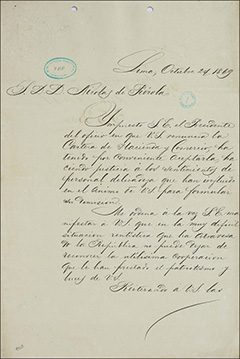 Lima, Octubre 24, 1869
S. S. D. Nicolas de Piérola.
Impuesto S. E. el Presidente
del oficio en que U.S. renuncia la
Cartera de Hacienda y Comercio, ha
tenido por conveniente aceptarla, ha
ciendo justicia a los sentimientos de
personal delicadeza que han influido
en el ánimo de US para formular
su dimision.
Me ordena a la vez S. E. ma
nifestar a US. que en la muy dificil
situacion rentística que ha atravesa
do la República no puede dejar de
reconocer la utilisima cooperacion
que le han prestado el patriotismo y
luces de US.
Reiterando a US. las